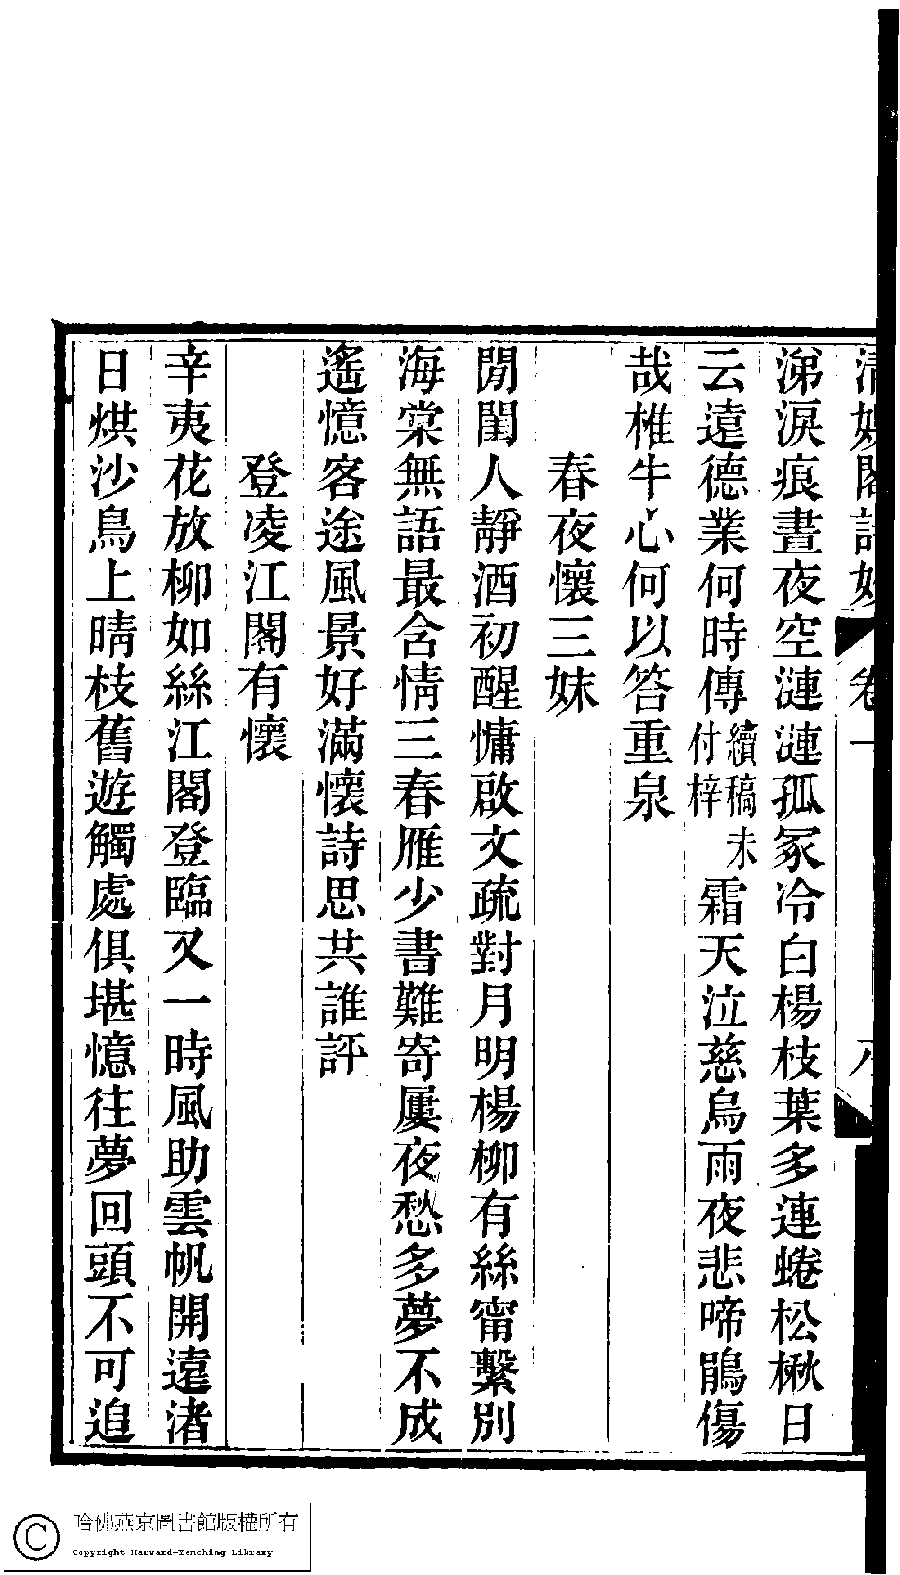 清娛閣詩鈔 卷一 八
涕淚痕晝夜空漣漣孤冢冷白楊枝葉多連蜷松楸日
云遠德業何時傳續稿未付梓霜天泣慈烏雨夜悲啼鵑傷
哉椎牛心何以答重泉
春夜懷三妹
閒閨人靜酒初醒慵啟文疏對月明楊柳有絲甯繫別
海棠無語最含情三春雁少書難寄屢夜愁多夢不成
遙憶客途風景好滿懷詩思共誰評
登凌江閣有懷
辛夷花放柳如絲江閣登臨又一時風助雲帆開遠渚
日烘沙鳥上晴枝舊遊觸處俱堪憶往夢回頭不可追
哈佛燕京圖書館版權所有
Copyright Harvard-Yenching Library